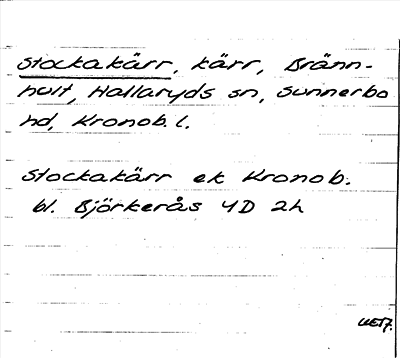 Stockakärr, kärr, Bränn-
hult, Hallaryds sn, Sunnerbo
hd, Kronob. l.
Stockakärr ek Kronob.
bl. Björkerås 4D 2h